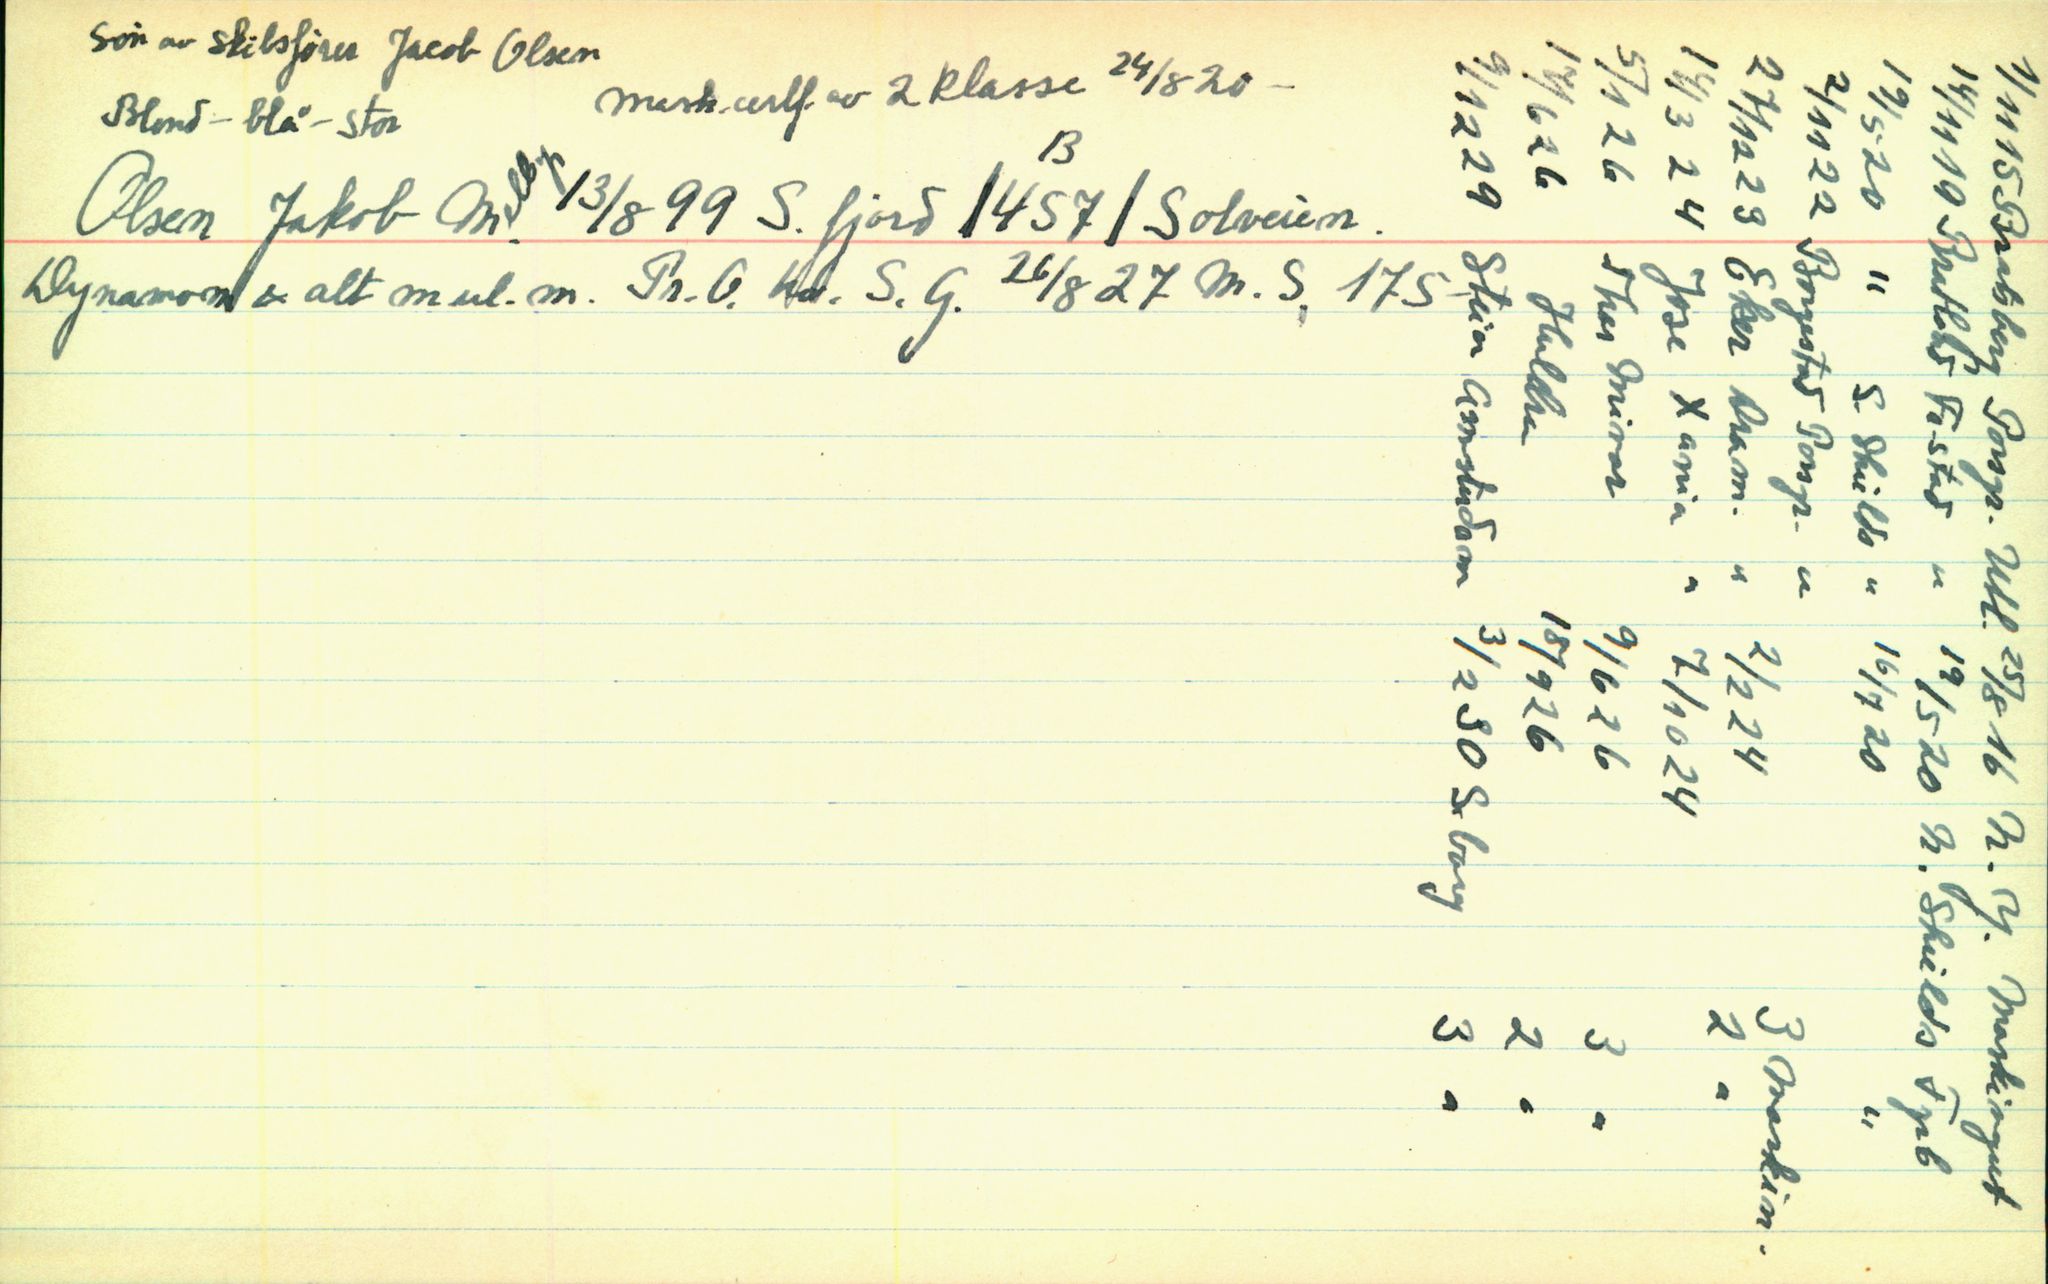 Søn av skibsfører Jacob Olsen
Blond - blå - stor
mask. certf. av 2 klasse 24/8 20 -
B
Olsen Jakob M. 13/8 99 S. fjord / 457 / Solveien.
Dynamom & alt m ul. m. Pr. O. S. G. 26/8 27 M. S. 175
1/11 15 Bratsberg Porsgr. Utl. 25/8 16 N. Y. Maskingut
14/11 19 Fr.stad " 19/5 20 N. Shields Fyrb
19/5 20 " S. Shields " 16/7 20 "
2/11 22 Borgestad Porsgr. "
27/12 23 Eker Dram. " 2/2 24 3 Maskin.
14/3 24 Jose X ania " 7/10 24 2 "
5/1 26 Thor Minor 9/6 26 3 "
14/6 26 Huldra 18/9 26 2 "
9/12 29 Stein Amsterdam 3/2 30 S.borg 3 "